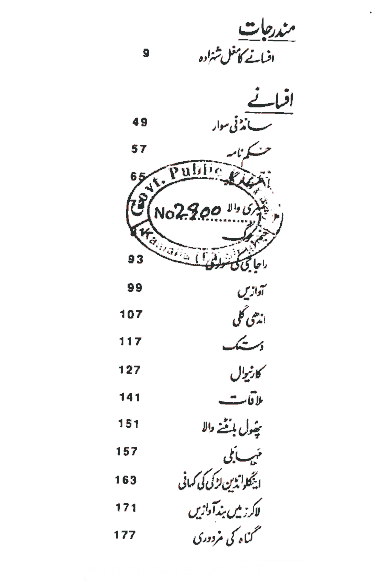 مندرجات
افسانے کا مغل شہزادہ 9
افسانے
سانڈنی سوار 49
حکم نامہ 57
65
Govt. Public
No 2900
ری والا
93 راجا جی کی سواری
آوازیں 99
اندھی گلی 107
دستک 117
کارنیوال 127
ملاقات 141
پھول بانٹنے والا 151
مہابلی 157
اینگلو انڈین لڑکی کی کہانی 163
لاکرز میں بند آوازیں 171
گناہ کی مزدوری 177